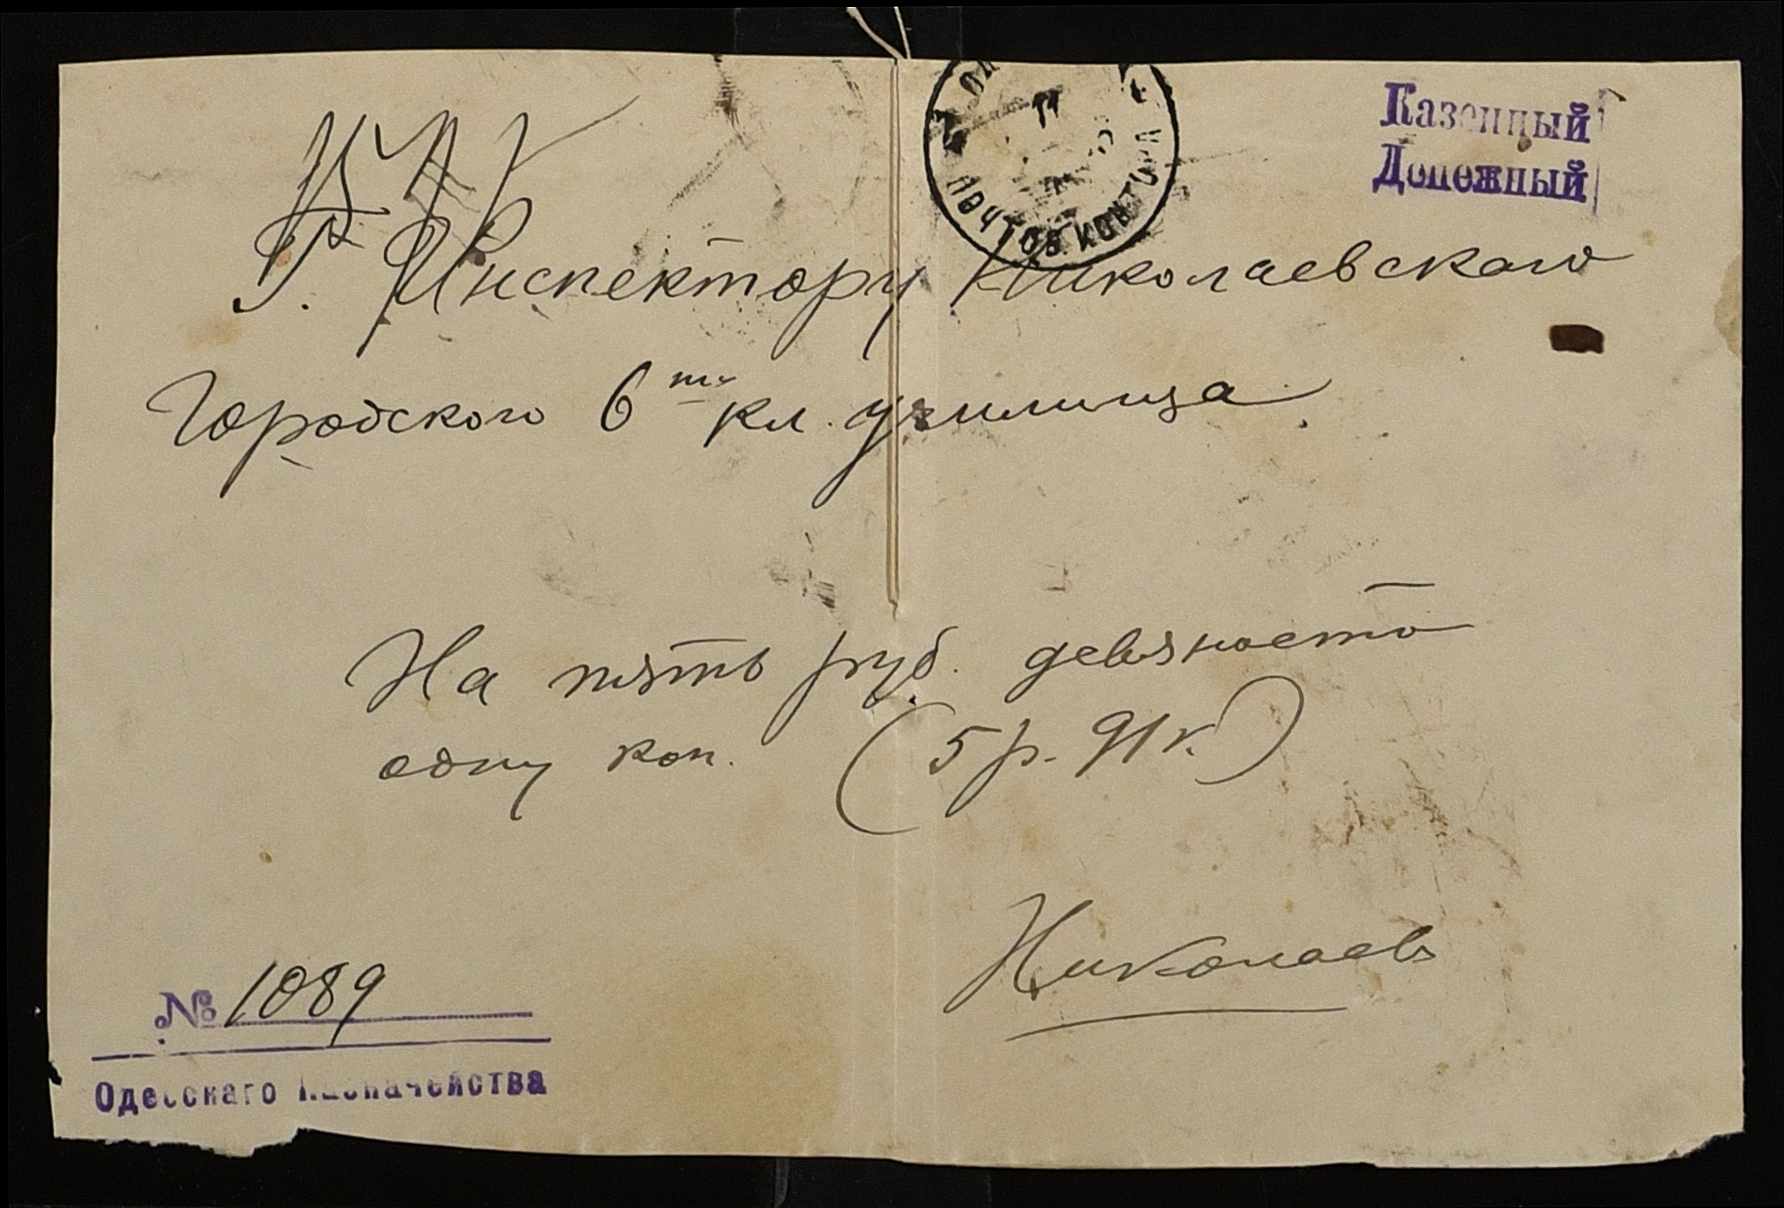 Казенный
Денежный
ПОЧТОВ. КОНТОРА
Г. Инспектору Николаевскаго
Городского 6ти кл. училища
На пять руб. девяносто
одну коп. (5 р. 91 к.)
Николаевъ
№ 1089
Одесскаго Казначейства